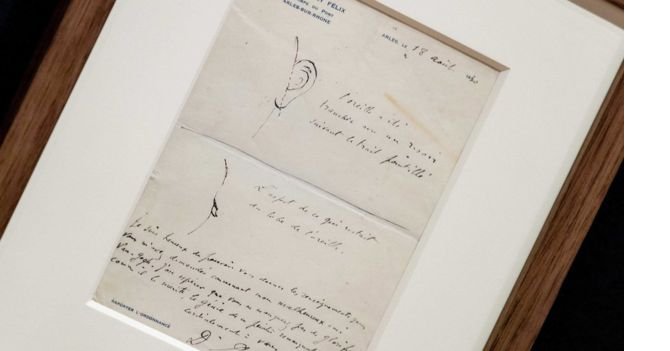 Y FÉLIX
DU PONT
ARLES-SUR-RHÔNE
ARLES, LE 18 août 1930
L'oreille a été
tranchée avec un rasoir
suivant le trait pointillé
L'aspect de ce qui restait
du lobe de l'oreille.
Je suis heureux de pouvoir vous donner les renseignements que
vous m'avez demandés concernant mon malheureux ami
Van-Gogh. J'espère que vous ne manquerez pas de glorifier
comme il le mérite le génie de ce
cordialement à vous
D
RAPPORTER L'ORDONNANCE